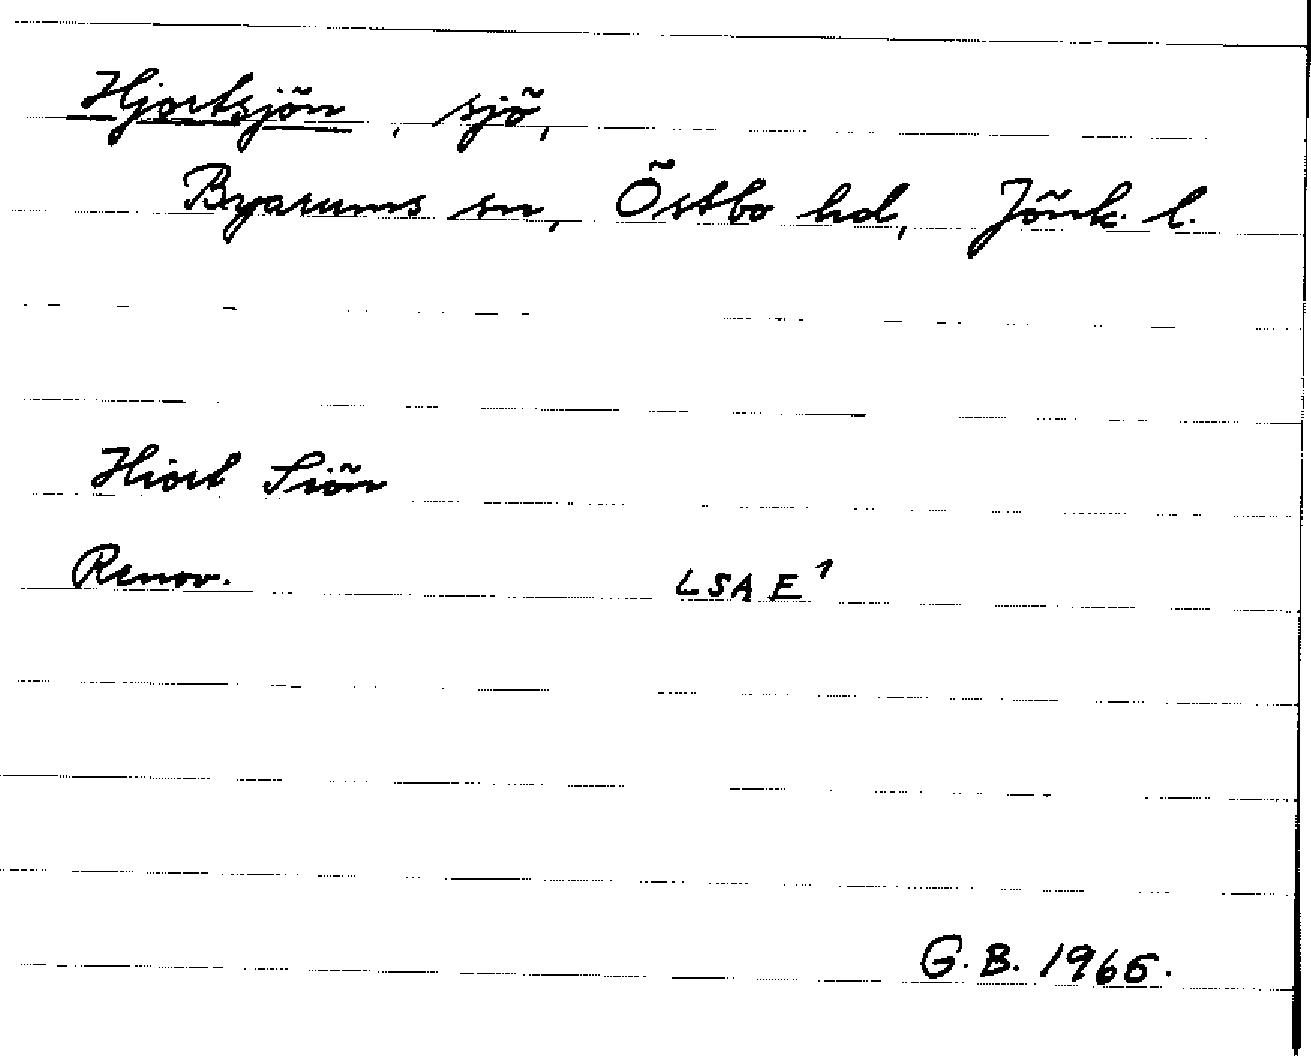 Hjortsjön, sjö,
Byarums sn, Östbo hd, Jönk. l.
Hiort Siön
Renov. LSA E1
G. B. 1966.